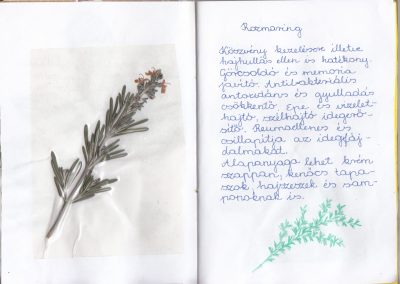 Rozmaring
Köszvény kezelésére illetve
hajhullás ellen is hatékony.
Görcsoldó és memória
javító. Antibakteriális
antioxidáns és gyulladás
csökkentő. Epe és vizelet-
hajtó, szélhajtó idegerő-
sítő. Reumaellenes és
csillapítja az idegfáj-
dalmakat.
Alapanyaga lehet krém
szappan, kenőcs tapa-
szok, hajszeszek és sam-
ponoknak is.